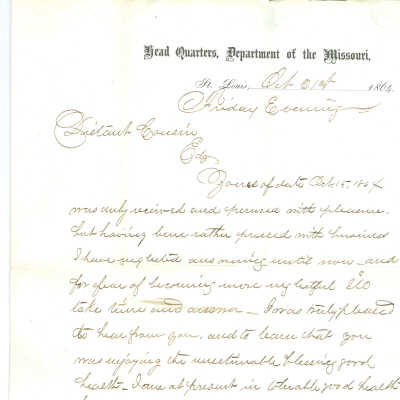 Head Quarters, Department of the Missouri,
St. Louis, Oct 21st 1864
Friday Evening
Distant Cousin
Ed
Yours of date Oct 15. 1864
was duly received and perused with pleasure.
but having bene rather pressed with business
I have neglected answering until now - and
for fear of becoming more neglectful I'lo
take time and answer - I was truly pleased
to hear from you, and to learn that you
was enjoying the unestimable blessing good
health - I am at present in tolerable good health